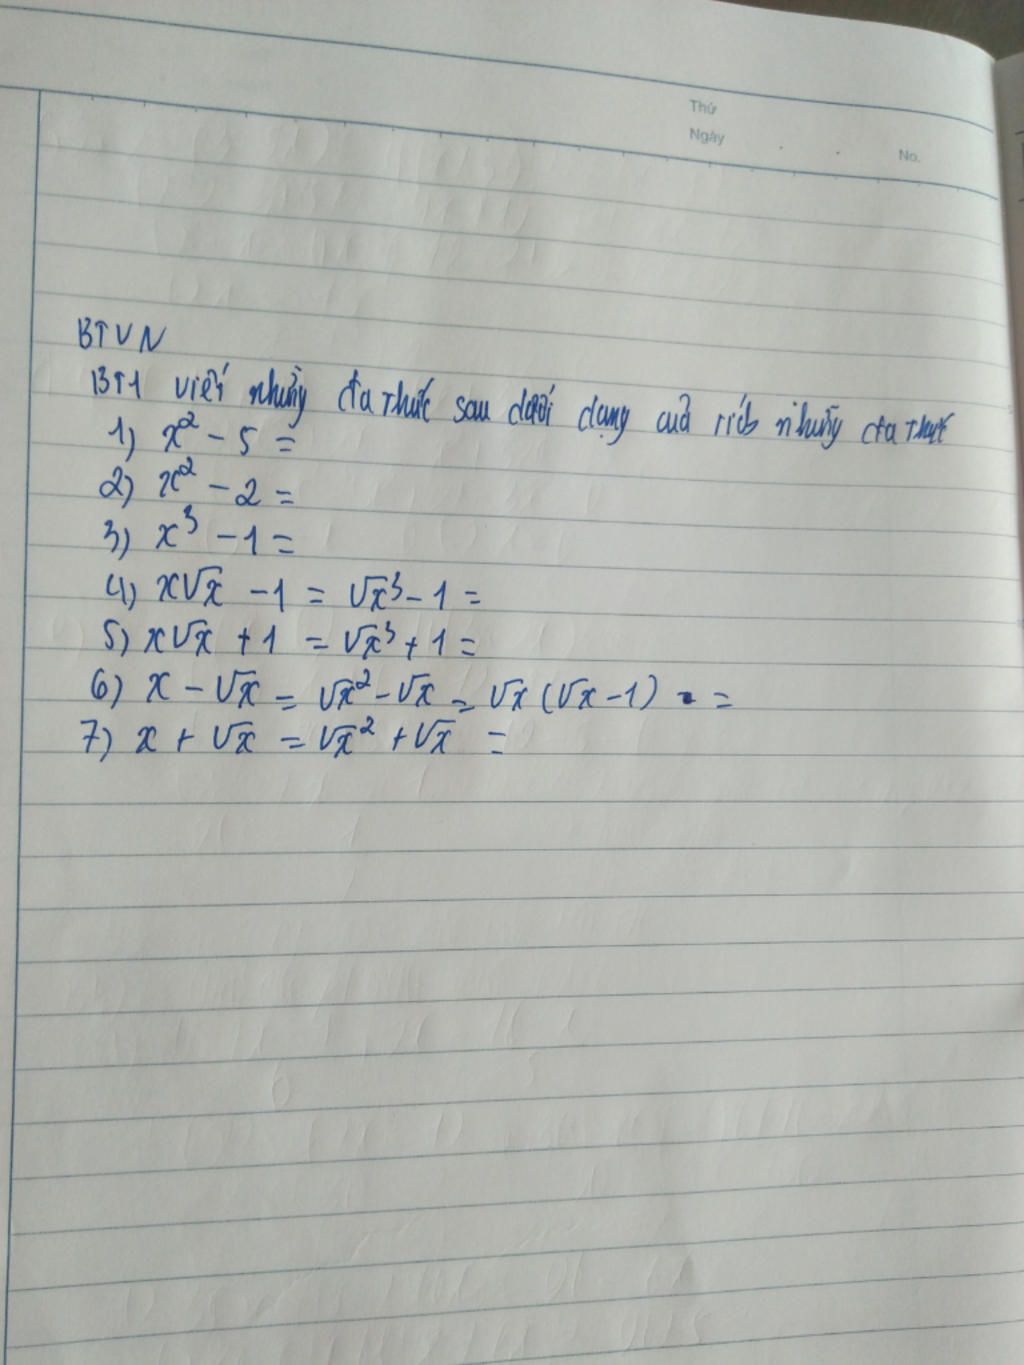 Thứ
Ngày
No.
BTVN
BT1 viết những đa thức sau dưới dạng của tích những đa thức
1) x² - 5 =
2) x² - 2 =
3) x³ - 1 =
4) x√x - 1 = √x³ - 1 =
5) x√x + 1 = √x³ + 1 =
6) x - √x = √x² - √x = √x (√x - 1) =
7) x + √x = √x² + √x =